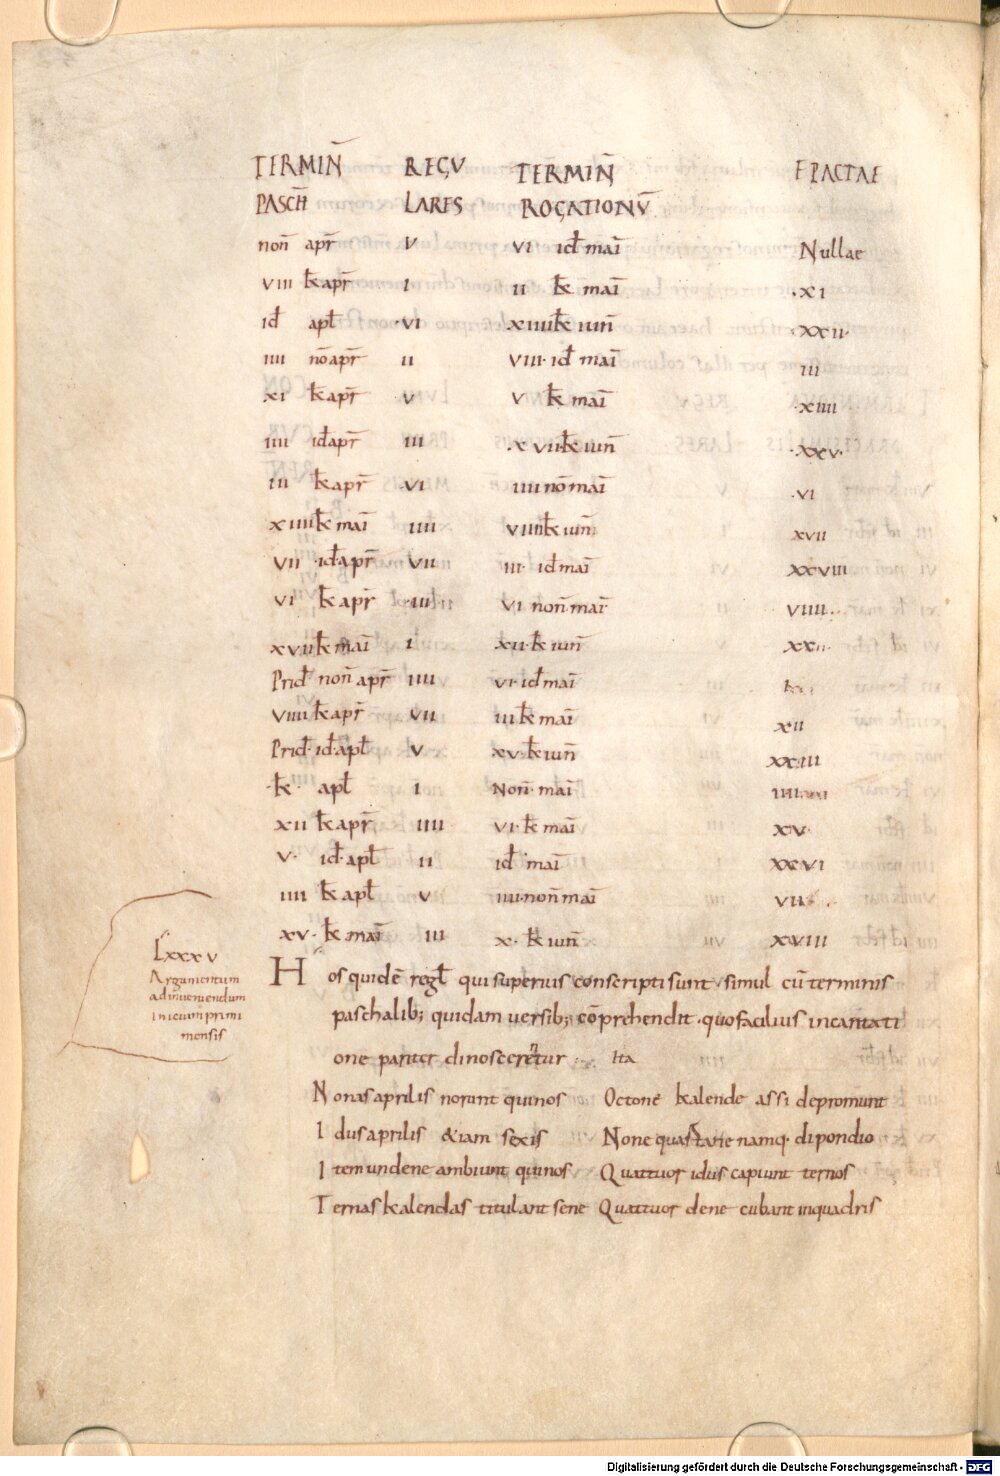 TERMIN̄ REGU TERMIN̄ EPACTAE
PASCH̄ LARES ROGATIONŪ
non̄ apr̄ V VI id̄ mai Nullae
VIII k̄ apr̄ I II k̄ mai XI
id̄ apl̄ VI XIIII k̄ iun̄ XXII
IIII nō apr̄ II VIII id̄ mai III
XI k̄ apr̄ V V k̄ mai XIIII
IIII id̄ apr̄ III XVII k̄ iun̄ XXV
III k̄ apr̄ VI IIII nō mai VI
XIIII k̄ mai IIII VIIII k̄ iun̄ XVII
VII id̄ apr̄ VII III id̄ mai XXVIII
VI k̄ apr̄ III VI non̄ mai VIIII
XVII k̄ mai I XII k̄ iun̄ XX
Prid̄ non̄ apr̄ IIII VI id̄ mai I
VIIII k̄ apr̄ VII III k̄ mai XII
Prid̄ id̄ apl̄ V XV k̄ iun̄ XXIII
k̄ apl̄ I Non̄ mai IIII
XII k̄ apr̄ IIII VI k̄ mai XV
V id̄ apl̄ II id̄ mai XXVI
IIII k̄ apl̄ V IIII non̄ mai VII
XV k̄ mai III X k̄ iun̄ XVIII
Hos quidē regl̄ qui superius conscripti sunt simul cū terminis
paschalib; quidam versib; cōprehendit quo facilius incantati
one pariter dinosceretur. Ita
LXXXV
Argumentum
ad inveniendum
inicium primi
mensis
Nonas aprilis norunt quinos Octonę kalende assi depromunt
Idus aprilis &iam sexis None quartane namq· dipondio
Item undene ambiunt quinos Quattuor idus capiunt ternos
Ternas kalendas titulant sene Quattuor dene cubant inquadris
Digitalisierung gefördert durch die Deutsche Forschungsgemeinschaft - DFG